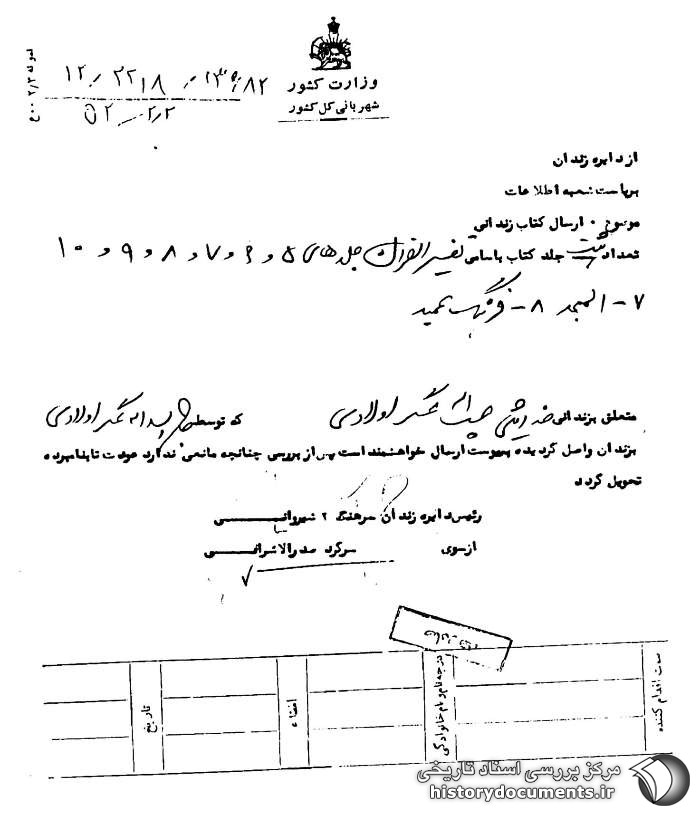 وزارت کشور
شهربانی کل کشور
از دایره زندان
بریاست شعبه اطلاعات
موضوع ۰ ارسال کتاب زندانی
تعداد هشت جلد کتاب باسامی تفسیر القرآن جلد های ۵ و ۶ و ۷ و ۸ و ۹ و ۱۰
۷ - المنجد ۸ - فرهنگ عمید
متعلق بزندانی حبیب اله عسگر اولادی که توسط اسداله عسگر اولادی
بزندان واصل گردیده بپیوست ارسال خواهشمند است پس از بررسی چنانچه مانعی ندارد عودت تا بنامبرده
تحویل گردد
رئیس دایره زندان سرهنگ ۲ شیروانی
از سوی سرگرد صدرالاشرافی
سمت اقدام کننده
درجه نام و نام خانوادگی
امضاء
تاریخ
مرکز بررسی اسناد تاریخی
historydocuments.ir